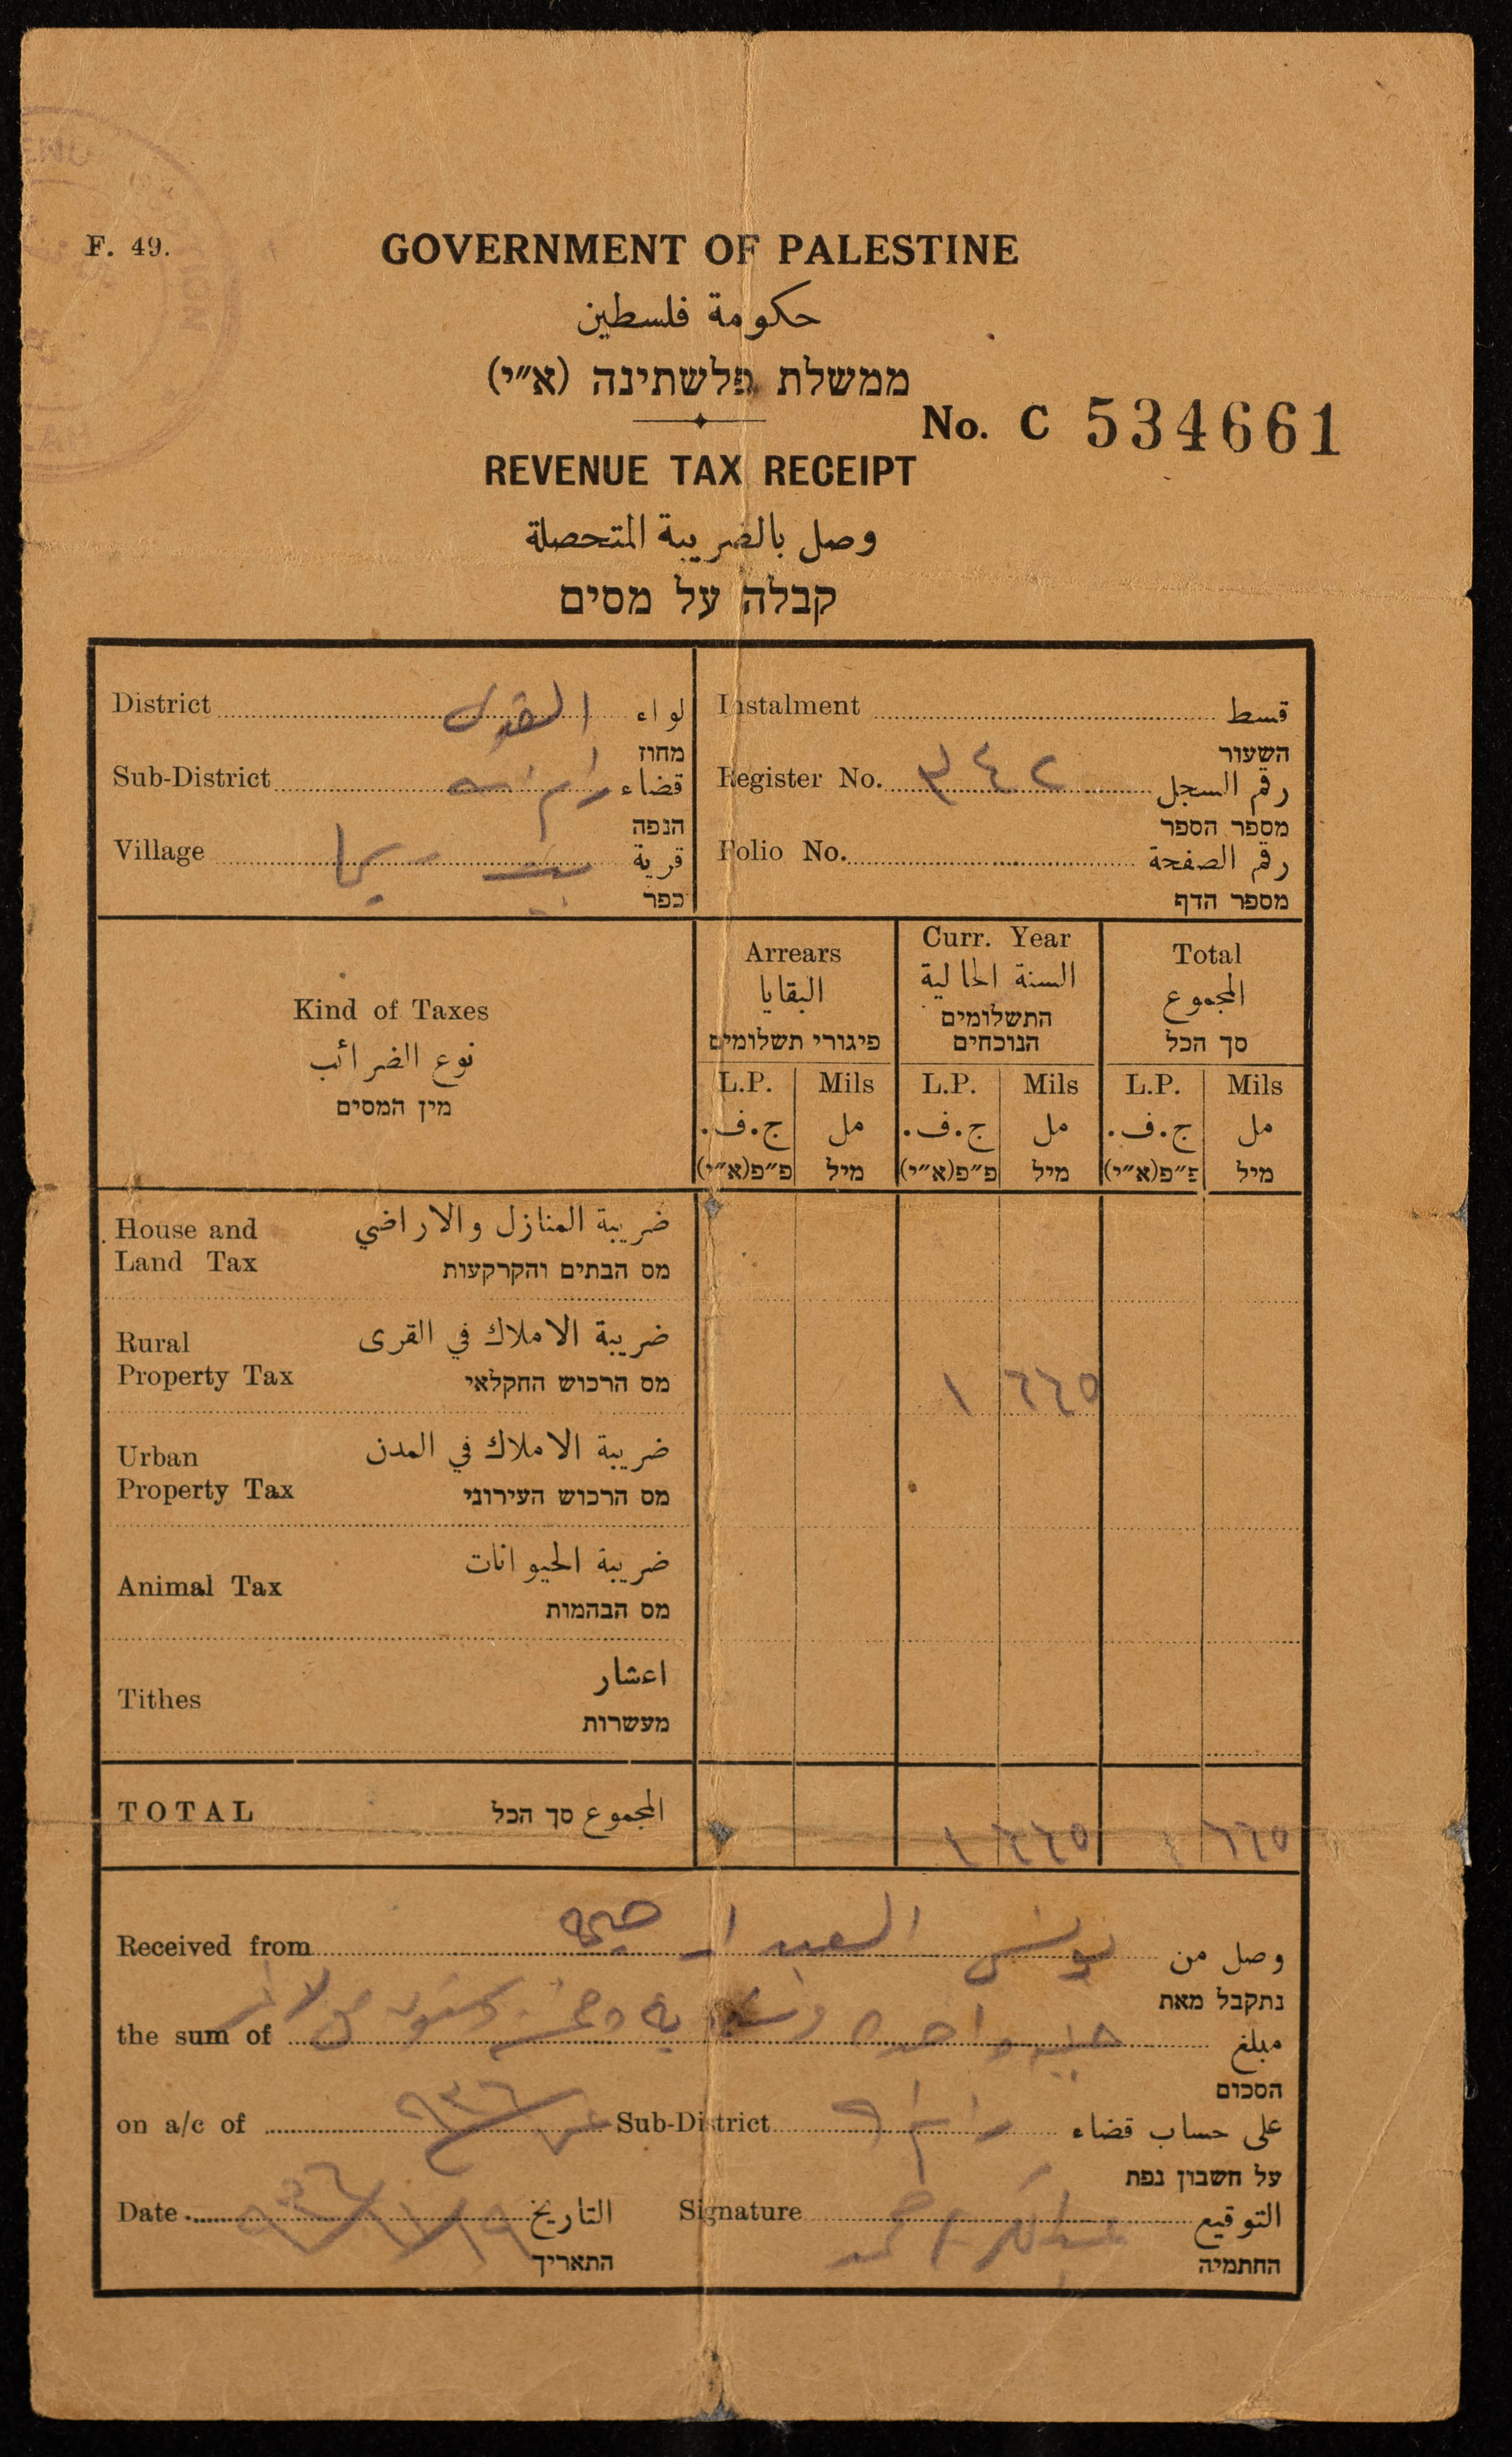 F. 49.
GOVERNMENT OF PALESTINE
حكومة فلسطين
ממשלת פלשתינה (א״י)
No. C 534661
REVENUE TAX RECEIPT
وصل بالضريبة المتحصلة
קבלה על מסים
District القدس لواء
מחוז
Instalment قسط
השעור
Sub-District رام الله قضاء
הנפה
Register No. ٣٤٢ رقم السجل
מספר הספר
Village بيت سيرا قرية
כפר
Folio No. رقم الصفحة
מספר הדף
Kind of Taxes
نوع الضرائب
מין המסים
Arrears
البقايا
פיגורי תשלומים
Curr. Year
السنة الحالية
התשלומים
הנוכחים
Total
المجموع
סך הכל
L.P. Mils L.P. Mils L.P. Mils
ج.ف. مل ج.ف. مل ج.ف. مل
פ״פ(א״י) מיל פ״פ(א״י) מיל פ״פ(א״י) מיל
House and
Land Tax
ضريبة المنازل والاراضي
מס הבתים והקרקעות
Rural
Property Tax
ضريبة الاملاك في القرى
מס הרכוש החקלאי
١ ٦٦٥
Urban
Property Tax
ضريبة الاملاك في المدن
מס הרכוש העירוני
Animal Tax
ضريبة الحيوانات
מס הבהמות
Tithes
اعشار
מעשרות
TOTAL المجموع סך הכל
١ ٦٦٥ ١ ٦٦٥
Received from يونس العبد وصل من
נתקבל מאת
the sum of جنيه واحد وستماية وخمسة وستون مل لا غير مبلغ
הסכום
on a/c of ٩٣٦ Sub-District رام الله على حساب قضاء
על חשבון נפת
Date ١٩/١١/٩٣٦ التاريخ
התאריך
Signature التوقيع
החתמיה